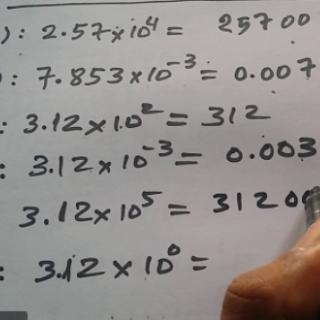 ): 2.57×10⁴ = 25700
): 7.853×10⁻³ = 0.007
: 3.12×10² = 312
: 3.12×10⁻³ = 0.003
3.12×10⁵ = 3120
: 3.12×10⁰ =